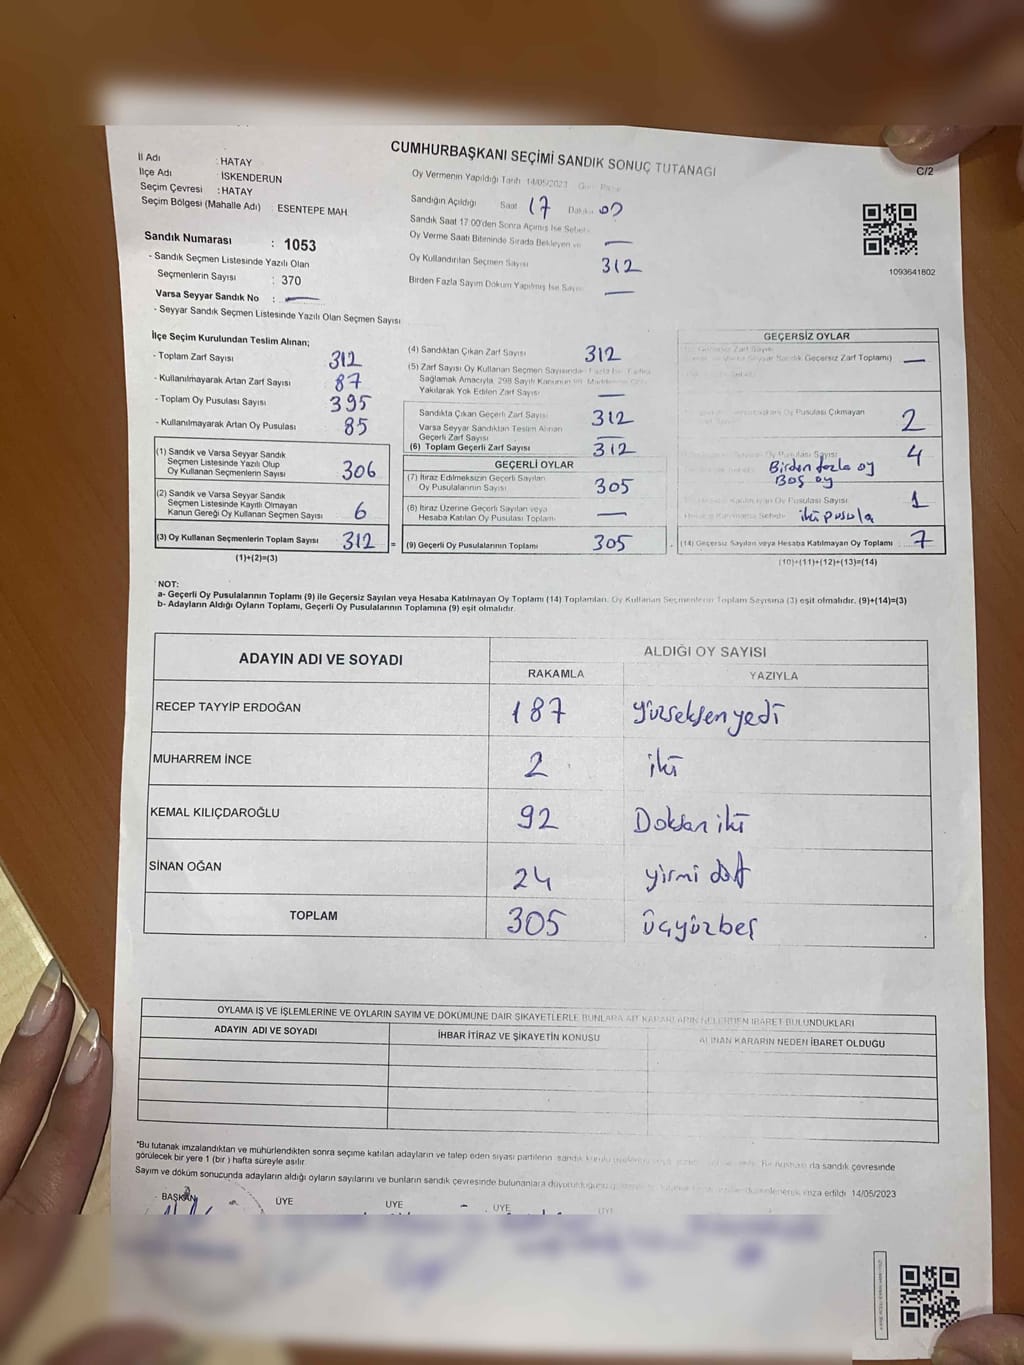 CUMHURBAŞKANI SEÇİMİ SANDIK SONUÇ TUTANAĞI
C/2
İl Adı : HATAY
İlçe Adı : İSKENDERUN
Seçim Çevresi : HATAY
Seçim Bölgesi (Mahalle Adı) : ESENTEPE MAH
Sandık Numarası : 1053
- Sandık Seçmen Listesinde Yazılı Olan
Seçmenlerin Sayısı : 370
Varsa Seyyar Sandık No : —
- Seyyar Sandık Seçmen Listesinde Yazılı Olan Seçmen Sayısı
Oy Vermenin Yapıldığı Tarih 14/05/2023
Sandığın Açıldığı Saat 17 Dakika 00
Sandık Saat 17:00'den Sonra Açılmış İse Sebebi
Oy Verme Saati Bitiminde Sırada Bekleyen ve —
Oy Kullandırılan Seçmen Sayısı 312
Birden Fazla Sayım Döküm Yapılmış İse Sayısı —
1093641802
İlçe Seçim Kurulundan Teslim Alınan;
- Toplam Zarf Sayısı 312
- Kullanılmayarak Artan Zarf Sayısı 87
- Toplam Oy Pusulası Sayısı 395
- Kullanılmayarak Artan Oy Pusulası 85
(1) Sandık ve Varsa Seyyar Sandık
Seçmen Listesinde Yazılı Olup
Oy Kullanan Seçmenlerin Sayısı 306
(2) Sandık ve Varsa Seyyar Sandık
Seçmen Listesinde Kayıtlı Olmayan
Kanun Gereği Oy Kullanan Seçmen Sayısı 6
(3) Oy Kullanan Seçmenlerin Toplam Sayısı 312 =
(1)+(2)=(3)
(4) Sandıktan Çıkan Zarf Sayısı 312
(5) Zarf Sayısı Oy Kullanan Seçmen Sayısından Fazla İse
Sağlamak Amacıyla, 298 Sayılı Kanunun
Yakılarak Yok Edilen Zarf Sayısı —
Sandıkta Çıkan Geçerli Zarf Sayısı 312
Varsa Seyyar Sandıktan Teslim Alınan
Geçerli Zarf Sayısı —
(6) Toplam Geçerli Zarf Sayısı 312
GEÇERLİ OYLAR
(7) İtiraz Edilmeksizin Geçerli Sayılan
Oy Pusulalarının Sayısı 305
(8) İtiraz Üzerine Geçerli Sayılan veya
Hesaba Katılan Oy Pusulası Toplamı —
(9) Geçerli Oy Pusulalarının Toplamı 305
GEÇERSİZ OYLAR
Geçersiz Zarf Toplamı) —
Oy Pusulası Çıkmayan 2
Oy Pusulası Sayısı 4
Birden fazla oy
Boş oy
Oy Pusulası Sayısı 1
iki pusula
(14) Geçersiz Sayılan veya Hesaba Katılmayan Oy Toplamı 7
(10)+(11)+(12)+(13)=(14)
NOT:
a- Geçerli Oy Pusulalarının Toplamı (9) ile Geçersiz Sayılan veya Hesaba Katılmayan Oy Toplamı (14) Toplamları, Oy Kullanan Seçmenlerin Toplam Sayısına (3) eşit olmalıdır. (9)+(14)=(3)
b- Adayların Aldığı Oyların Toplamı, Geçerli Oy Pusulalarının Toplamına (9) eşit olmalıdır.
ADAYIN ADI VE SOYADI
ALDIĞI OY SAYISI
RAKAMLA YAZIYLA
RECEP TAYYİP ERDOĞAN 187 yüzseksenyedi
MUHARREM İNCE 2 iki
KEMAL KILIÇDAROĞLU 92 Doksan iki
SİNAN OĞAN 24 yirmi dört
TOPLAM 305 üçyüzbeş
OYLAMA İŞ VE İŞLEMLERİNE VE OYLARIN SAYIM VE DÖKÜMÜNE DAİR ŞİKAYETLERLE BUNLARA AİT KARARLARIN NELERDEN İBARET BULUNDUKLARI
ADAYIN ADI VE SOYADI İHBAR İTİRAZ VE ŞİKAYETİN KONUSU ALINAN KARARIN NEDEN İBARET OLDUĞU
*Bu tutanak imzalandıktan ve mühürlendikten sonra seçime katılan adayların ve talep eden siyasi partilerin sandık kurulu Bir nüshası da sandık çevresinde
görülecek bir yere 1 (bir) hafta süreyle asılır.
Sayım ve döküm sonucunda adayların aldığı oyların sayılarını ve bunların sandık çevresinde bulunanlara duyurulduğunu imza edildi 14/05/2023
BAŞKAN ÜYE ÜYE ÜYE ÜYE